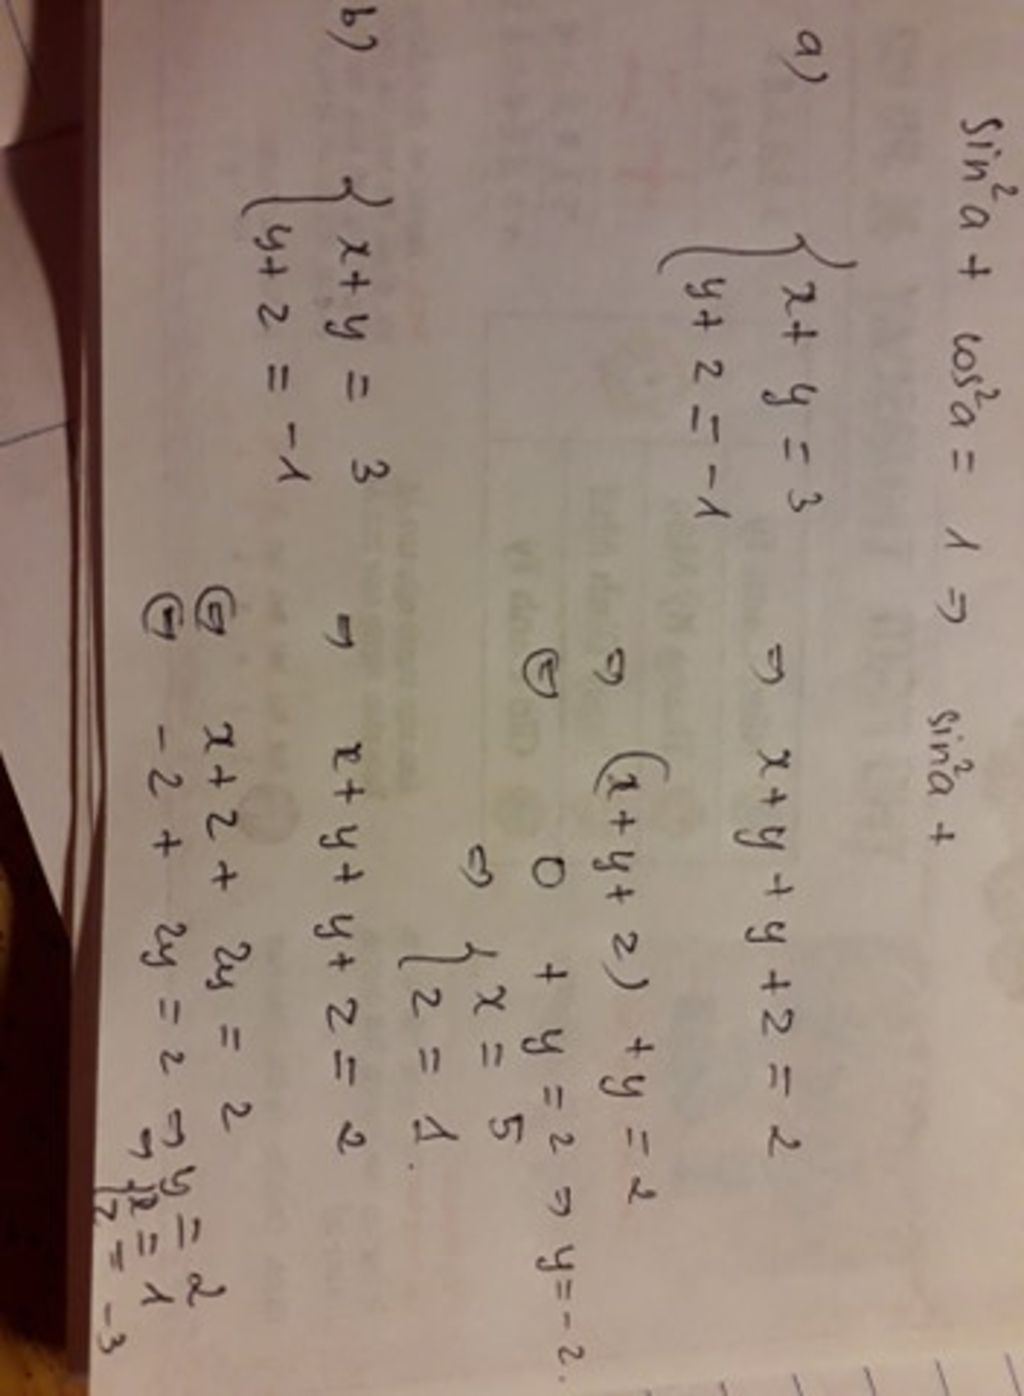 sin²a + cos²a = 1 ⇒ sin²a +
a) { x + y = 3 ⇒ x + y + y + z = 2
y + z = -1
⇒ (x + y + z) + y = 2
⇔ 0 + y = 2 ⇒ y = -2.
⇒ { x = 5
z = 1.
b) { x + y = 3 ⇒ x + y + y + z = 2
y + z = -1
⇔ x + z + 2y = 2
⇔ -2 + 2y = 2 ⇒ y = 2
⇒ { x = 1
z = -3